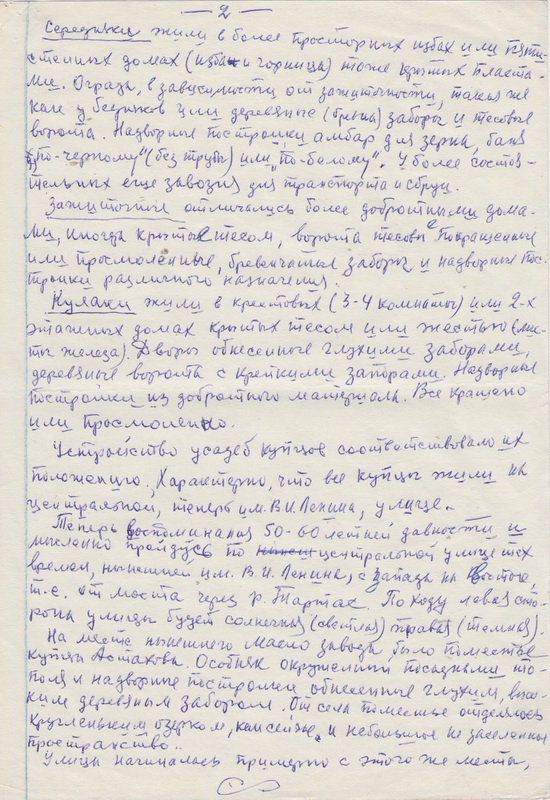 — 2 —
Середняки жили в более просторных избах или пяти-
стенных домах (изба и горница) тоже крытых пласта-
ми. Ограда, в зависимости от зажиточности, такая же
как у бедняков или деревянные (бревна) заборы и тесовые
ворота. Надворные постройки амбар для зерна, баня
"по-черному" (без трубы) или "по-белому". У более состоя-
тельных еще завозня для транспорта и сбруи.
Зажиточные отличались более добротными дома-
ми, иногда крытые тесом, ворота тесовые покрашенные
или просмоленные, бревенчатые заборы и надворные пос-
тройки различного назначения.
Кулаки жили в крестовых (3-4 комнаты) или 2-х
этажных домах крытых тесом или жестью (лис-
ты железа). Дворы обнесенные глухими заборами,
деревянные ворота с крепкими запорами. Надворные
постройки из добротного материала. Все крашено
или просмолено.
Устройство усадеб купцов соответствовало их
положению. Характерно, что все купцы жили на
центральной, теперь им. В.И Ленина, улице.
Теперь воспоминания 50-60 летней давности и
мысленно пройдусь по центральной улице тех
времен, нынешней им. В.И. Ленина, с запада на восток,
т.е. от моста через р. Тартас. По ходу левая сто-
рона улицы будет солнечная (светлая) правая (темная).
На месте нынешнего масло завода было поместье
купца Астахова. Особняк окруженный посадками то-
поля и надворные постройки обнесенные глухим, высо-
ким деревянным забором. От села поместье отделялось
кругленьким озерком, как сейчас, и небольшое не заселенное
пространство..
Улица начиналась примерно с этого же места,